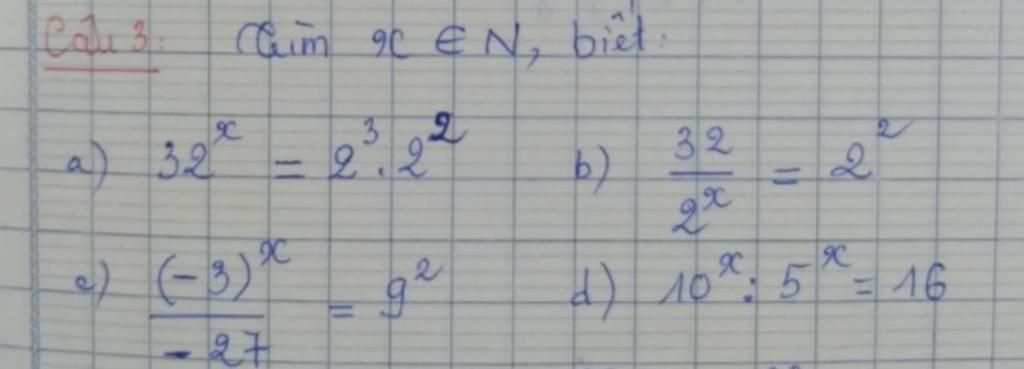 Câu 3: Tìm x ∈ N, biết:
a) 32^x = 2^3 . 2^2 b) 32/2^x = 2^2
c) (-3)^x/-27 = 9^2 d) 10^x : 5^x = 16